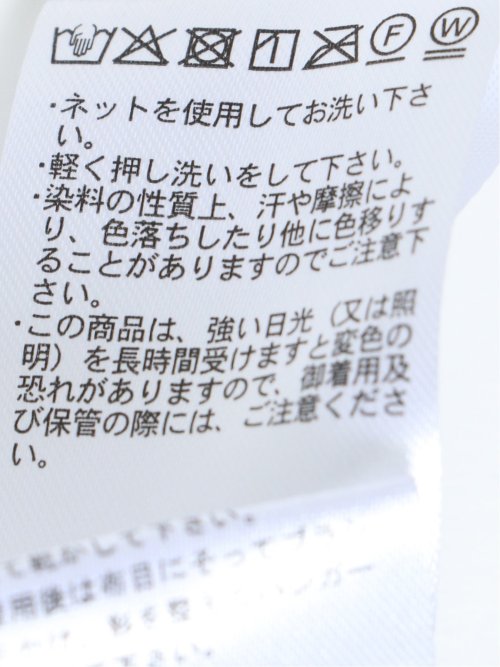 F W
・ネットを使用してお洗い下さ
い。
・軽く押し洗いをして下さい。
・染料の性質上、汗や摩擦によ
り、色落ちしたり他に色移りす
ることがありますのでご注意下
さい。
・この商品は、強い日光（又は照
明）を長時間受けますと変色の
恐れがありますので、御着用及
び保管の際には、ご注意くださ
い。
て乾かして下さい。
着用後は布目にそってブラ
下さい。